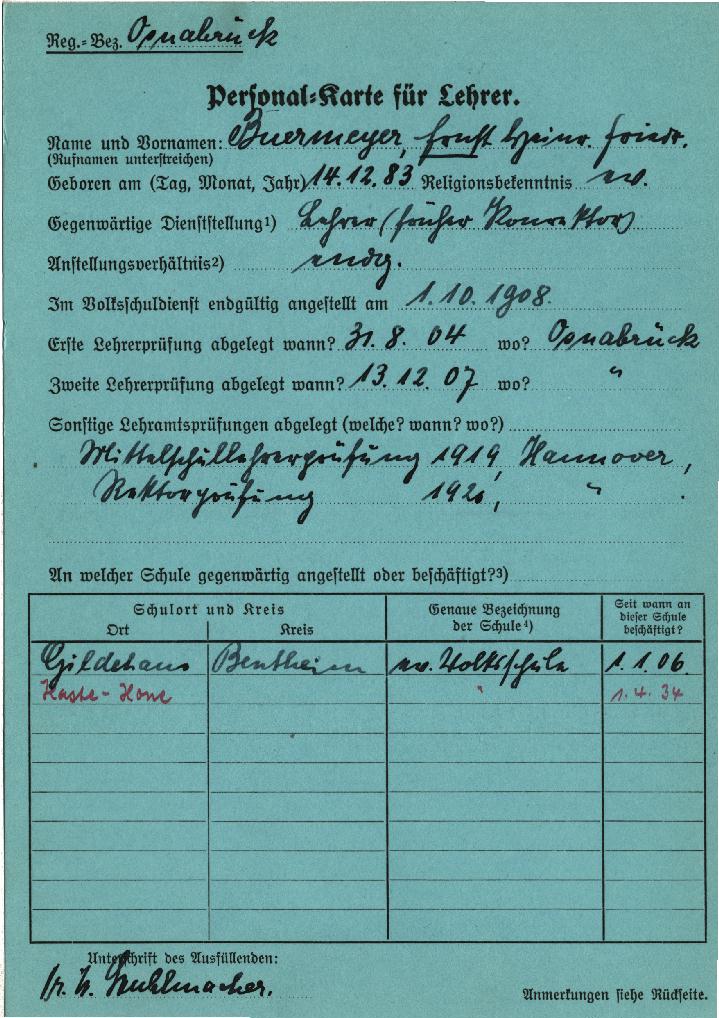 Reg.-Bez. Osnabrück
Personal-Karte für Lehrer.
Name und Vornamen: Buermeyer, Ernst Heinr. Friedr.
(Rufnamen unterstreichen)
Geboren am (Tag, Monat, Jahr) 14.12.83 Religionsbekenntnis ev.
Gegenwärtige Dienststellung¹) Lehrer (früher Konrektor)
Anstellungsverhältnis²) endg.
Im Volksschuldienst endgültig angestellt am 1.10.1908.
Erste Lehrerprüfung abgelegt wann? 31.8.04 wo? Osnabrück
Zweite Lehrerprüfung abgelegt wann? 13.12.07 wo? "
Sonstige Lehramtsprüfungen abgelegt (welche? wann? wo?)
Mittelschullehrerprüfung 1919, Hannover,
Rektorprüfung 1920, " .
An welcher Schule gegenwärtig angestellt oder beschäftigt?³)
Schulort und Kreis
Ort Kreis
Genaue Bezeichnung
der Schule⁴)
Seit wann an
dieser Schule
beschäftigt?
Gildehaus Bentheim ev. Volksschule 1.1.06.
Haste-Hone " 1.4.34
Unterschrift des Ausfüllenden:
Anmerkungen siehe Rückseite.